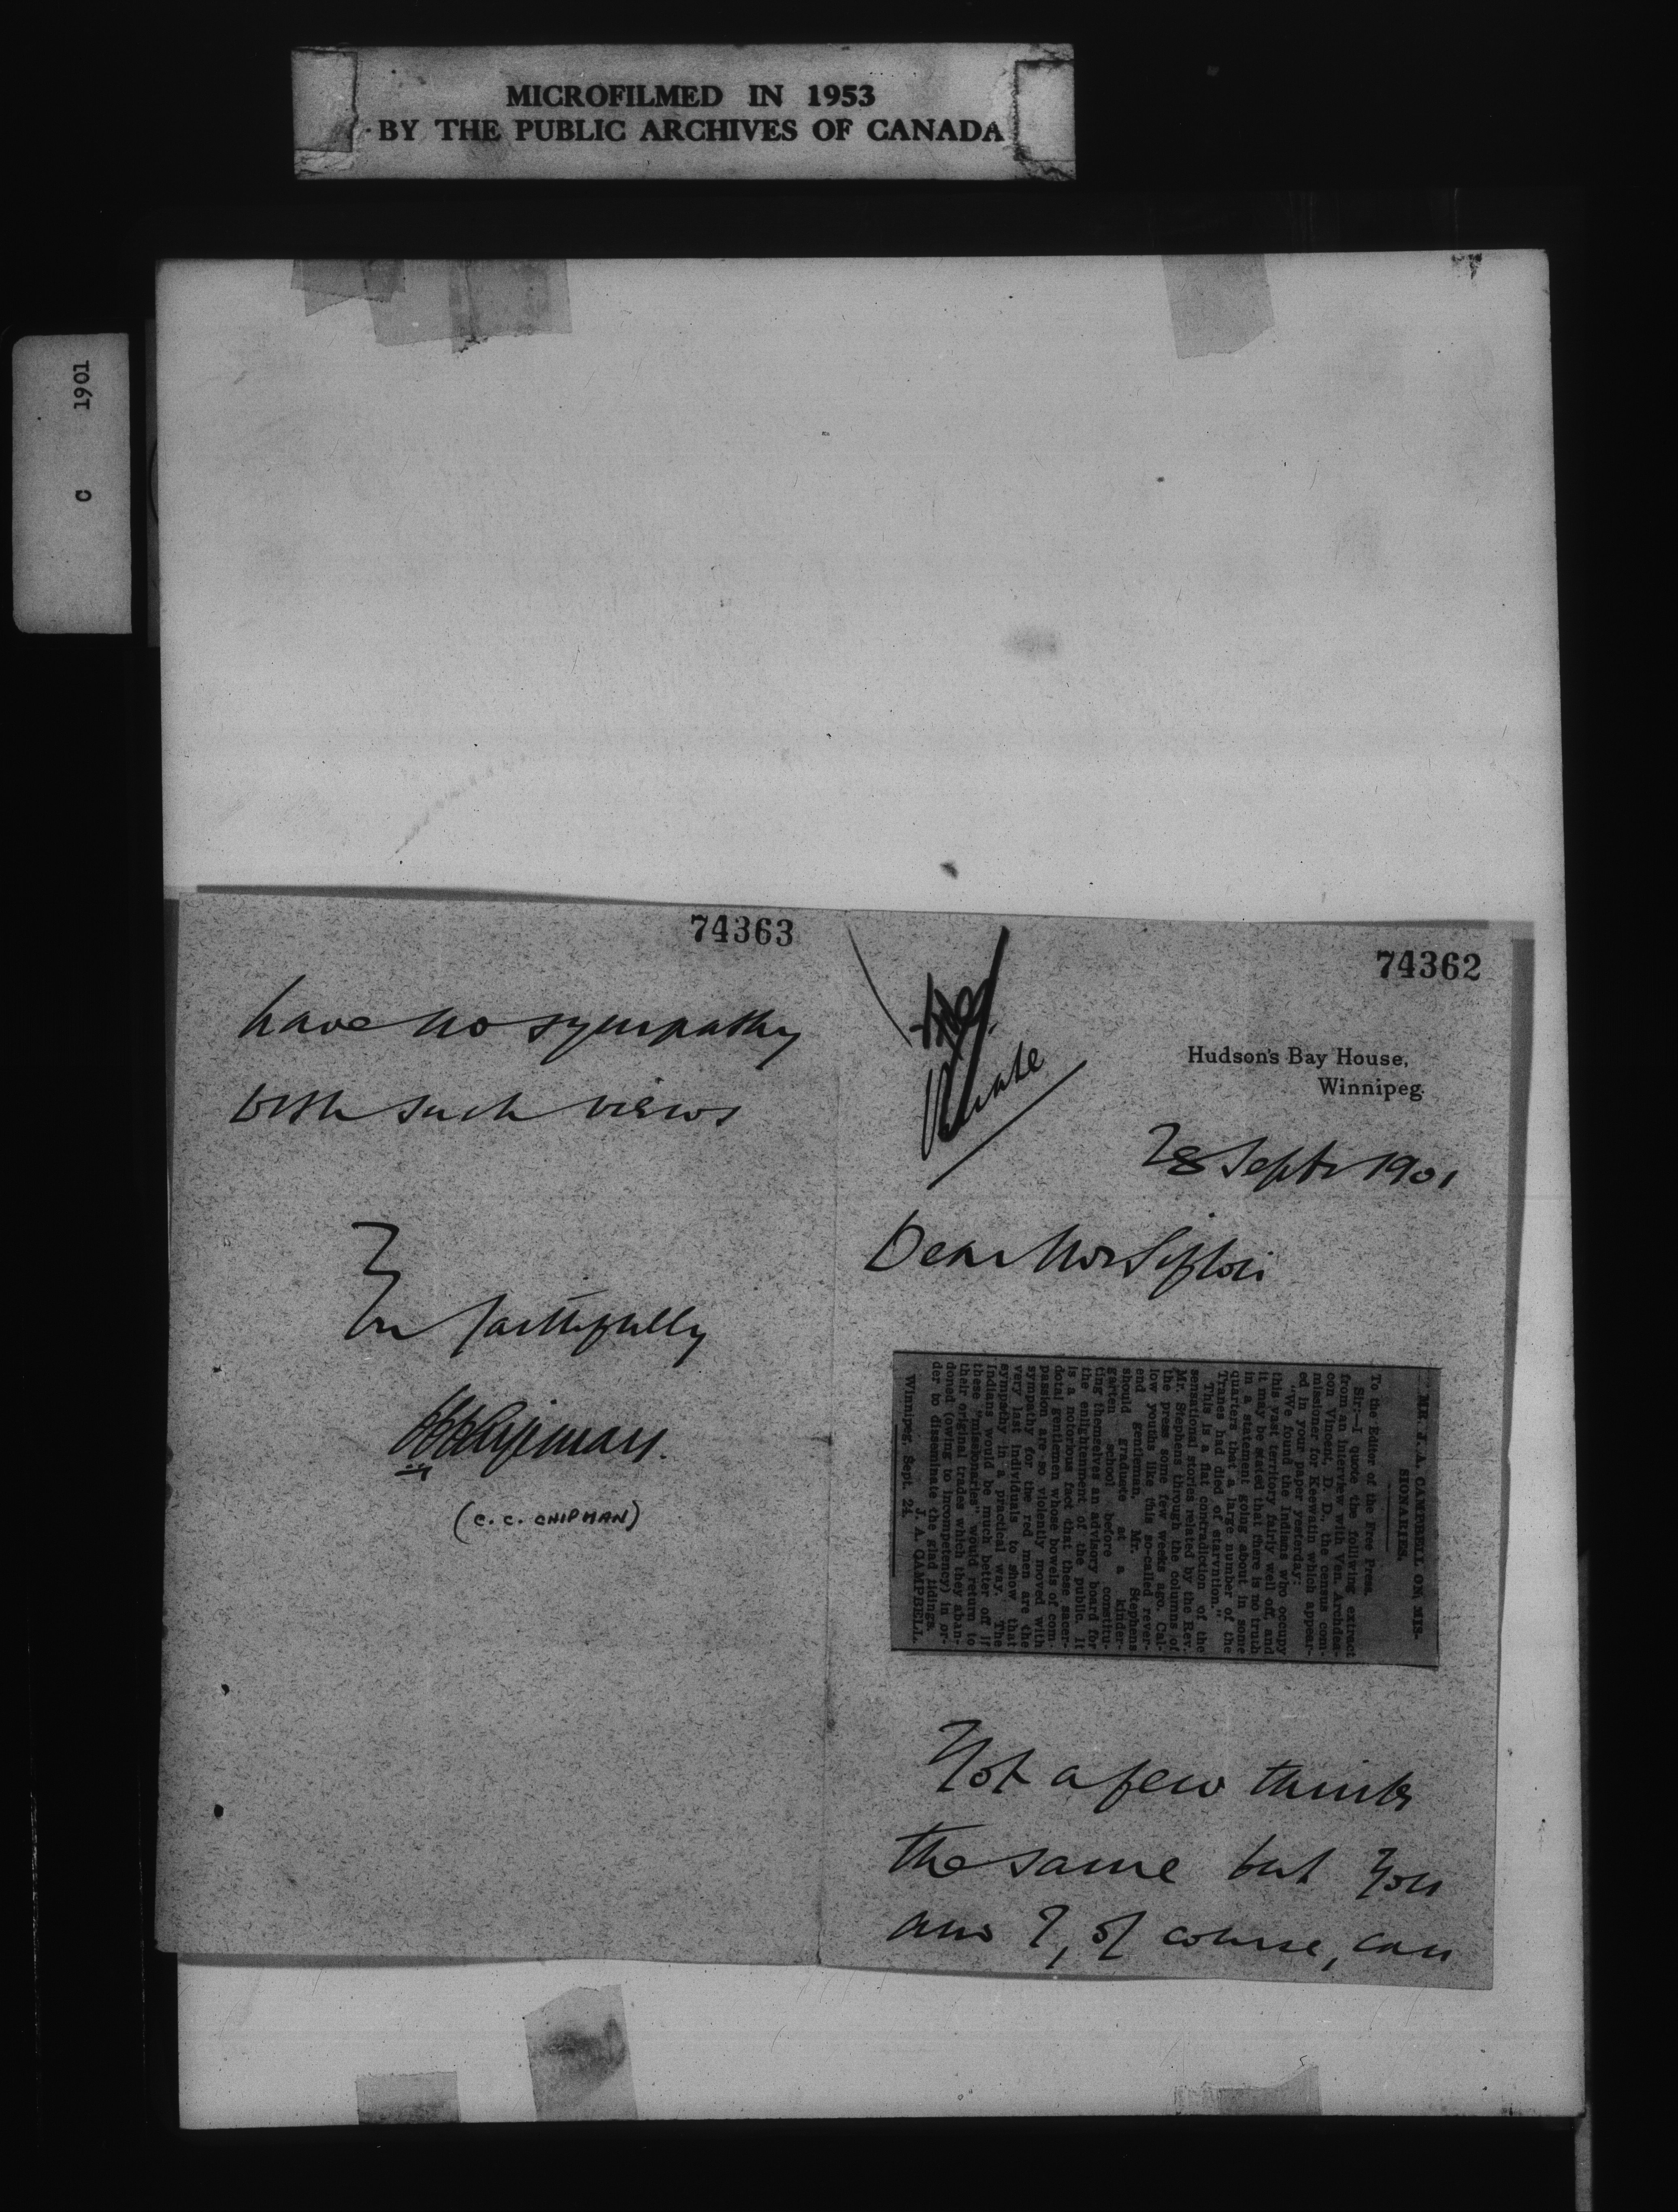 MICROFILMED IN 1953
BY THE PUBLIC ARCHIVES OF CANADA
C 1901
74362
Private
Hudson's Bay House,
Winnipeg.
28 Septr 1901
Dear Mr Sifton
MR. J. A. CAMPBELL ON MIS-
SIONARIES.
To the Editor of the Free Press.
Sir:—I quote the following extract
from an interview with Ven. Archdea-
con Vincent, D. D., the census com-
missioner for Keewatin which appear-
ed in your paper yesterday:
"We found the Indians who occupy
this vast territory fairly well off, and
it may be stated that there is no truth
in a statement going about in some
quarters that a large number of the
Tranes had died of starvation."
This is a flat contradiction of the
sensational stories related by the Rev.
Mr. Stephens through the columns of
the press some few weeks ago. Cal-
low youths like this so-called rever-
end gentleman, Mr. Stephens
should graduate at a kinder-
garten school before constitu-
ting themselves an advisory board for
the enlightenment of the public. It
is a notorious fact that these sacer-
dotal gentlemen whose bowels of com-
passion are so violently moved with
sympathy for the red men are the
very last individuals to show that
sympathy in a practical way. The
Indians would be much better off if
these "missionaries" would return to
their original trades which they aban-
doned (owing to incompetency) in or-
der to disseminate the glad tidings.
J. A. CAMPBELL.
Winnipeg, Sept. 24.
Not a few think
the same but you
and I, of course, can
74363
have no sympathy
with such views
Yrs faithfully
CCChipman.
(C. C. CHIPMAN)